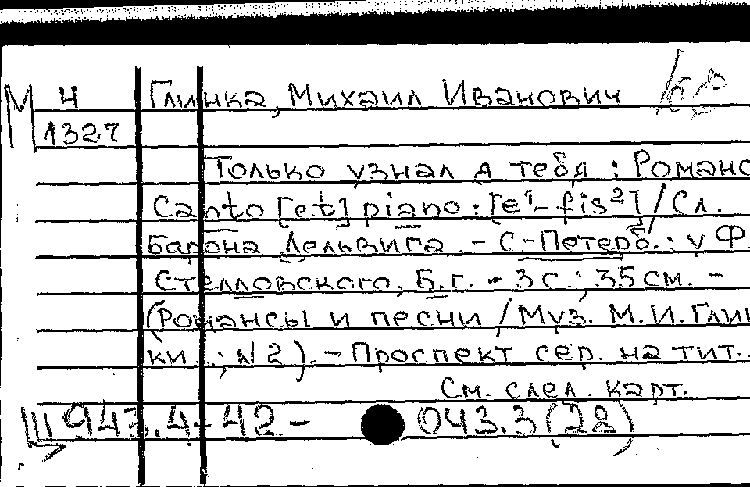 М Ч Глинка, Михаил Иванович
1327
Только узнал я тебя : Романс
Canto [et] piano : [e¹ - fis²] / Сл.
барона Дельвига. - С-Петерб. : у Ф
Стелловского, Б.г. - 3 с. ; 35 см. -
(Романсы и песни / Муз. М. И. Глин
ки ; N 2). - Проспект сер. на тит.
См. след. карт.
Ш 943.4-42- 043.3(28)